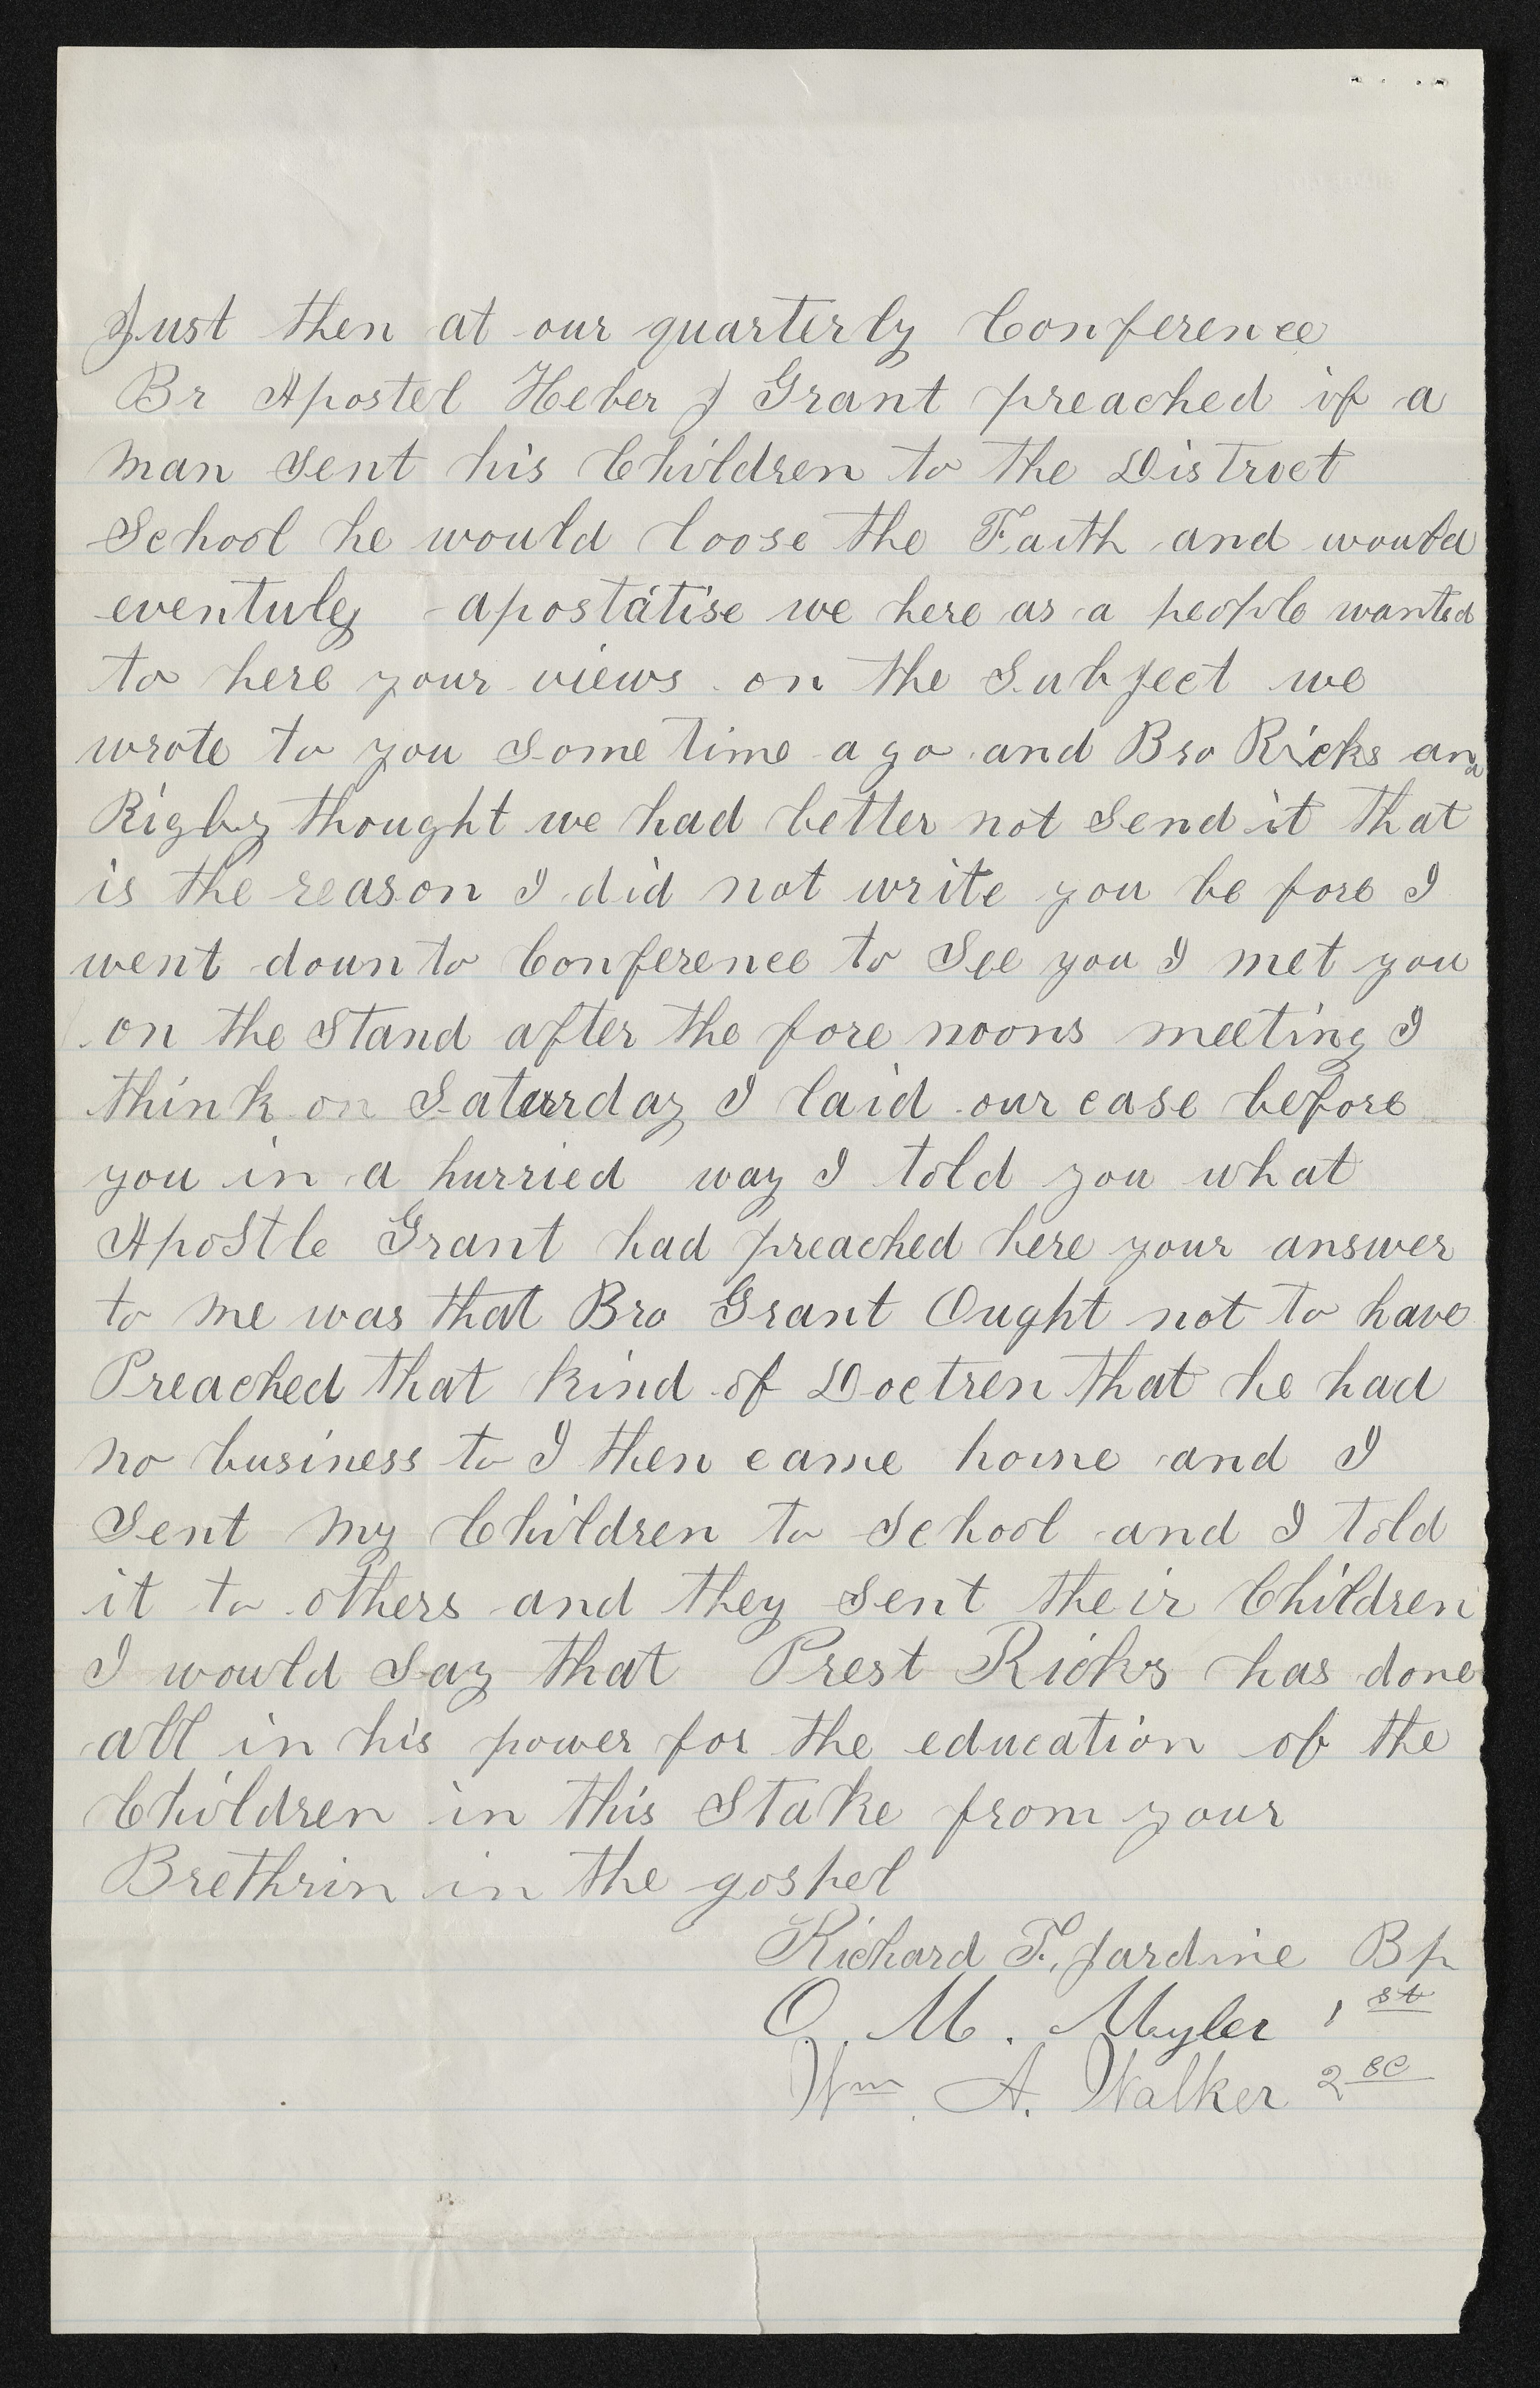 Just then at our quarterly Conference
Br Apostel Heber J Grant preached if a
man sent his Children to the Distroct
School he would loose the Faith and would
eventuley apostatise we here as a people wanted
to here your views on the Subject we
wrote to you some time ago and Bro Ricks and
Rigby thought we had better not Send it that
is the reason I did not write you be fore I
went down to Conference to See you I met you
on the Stand after the fore noons meeting I
think on Saturday I laid our case before
you in a hurried way I told you what
Apostle Grant had preached here your answer
to me was that Bro Grant Ought not to have
Preached that kind of Doctren that he had
no business to I then came home and I
Sent my Children to School and I told
it to others and they Sent their Children
I would Say that Prest Ricks has done
all in his power for the education of the
Children in this Stake from your
Brethrin in the gospel
Richard F. Jardine Bp
O. M. Myler 1st
Wm. A. Walker 2se